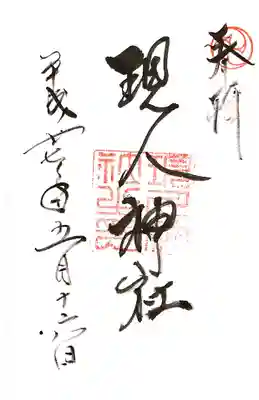 奉拝
現人神社
平成廿七年五月十六日